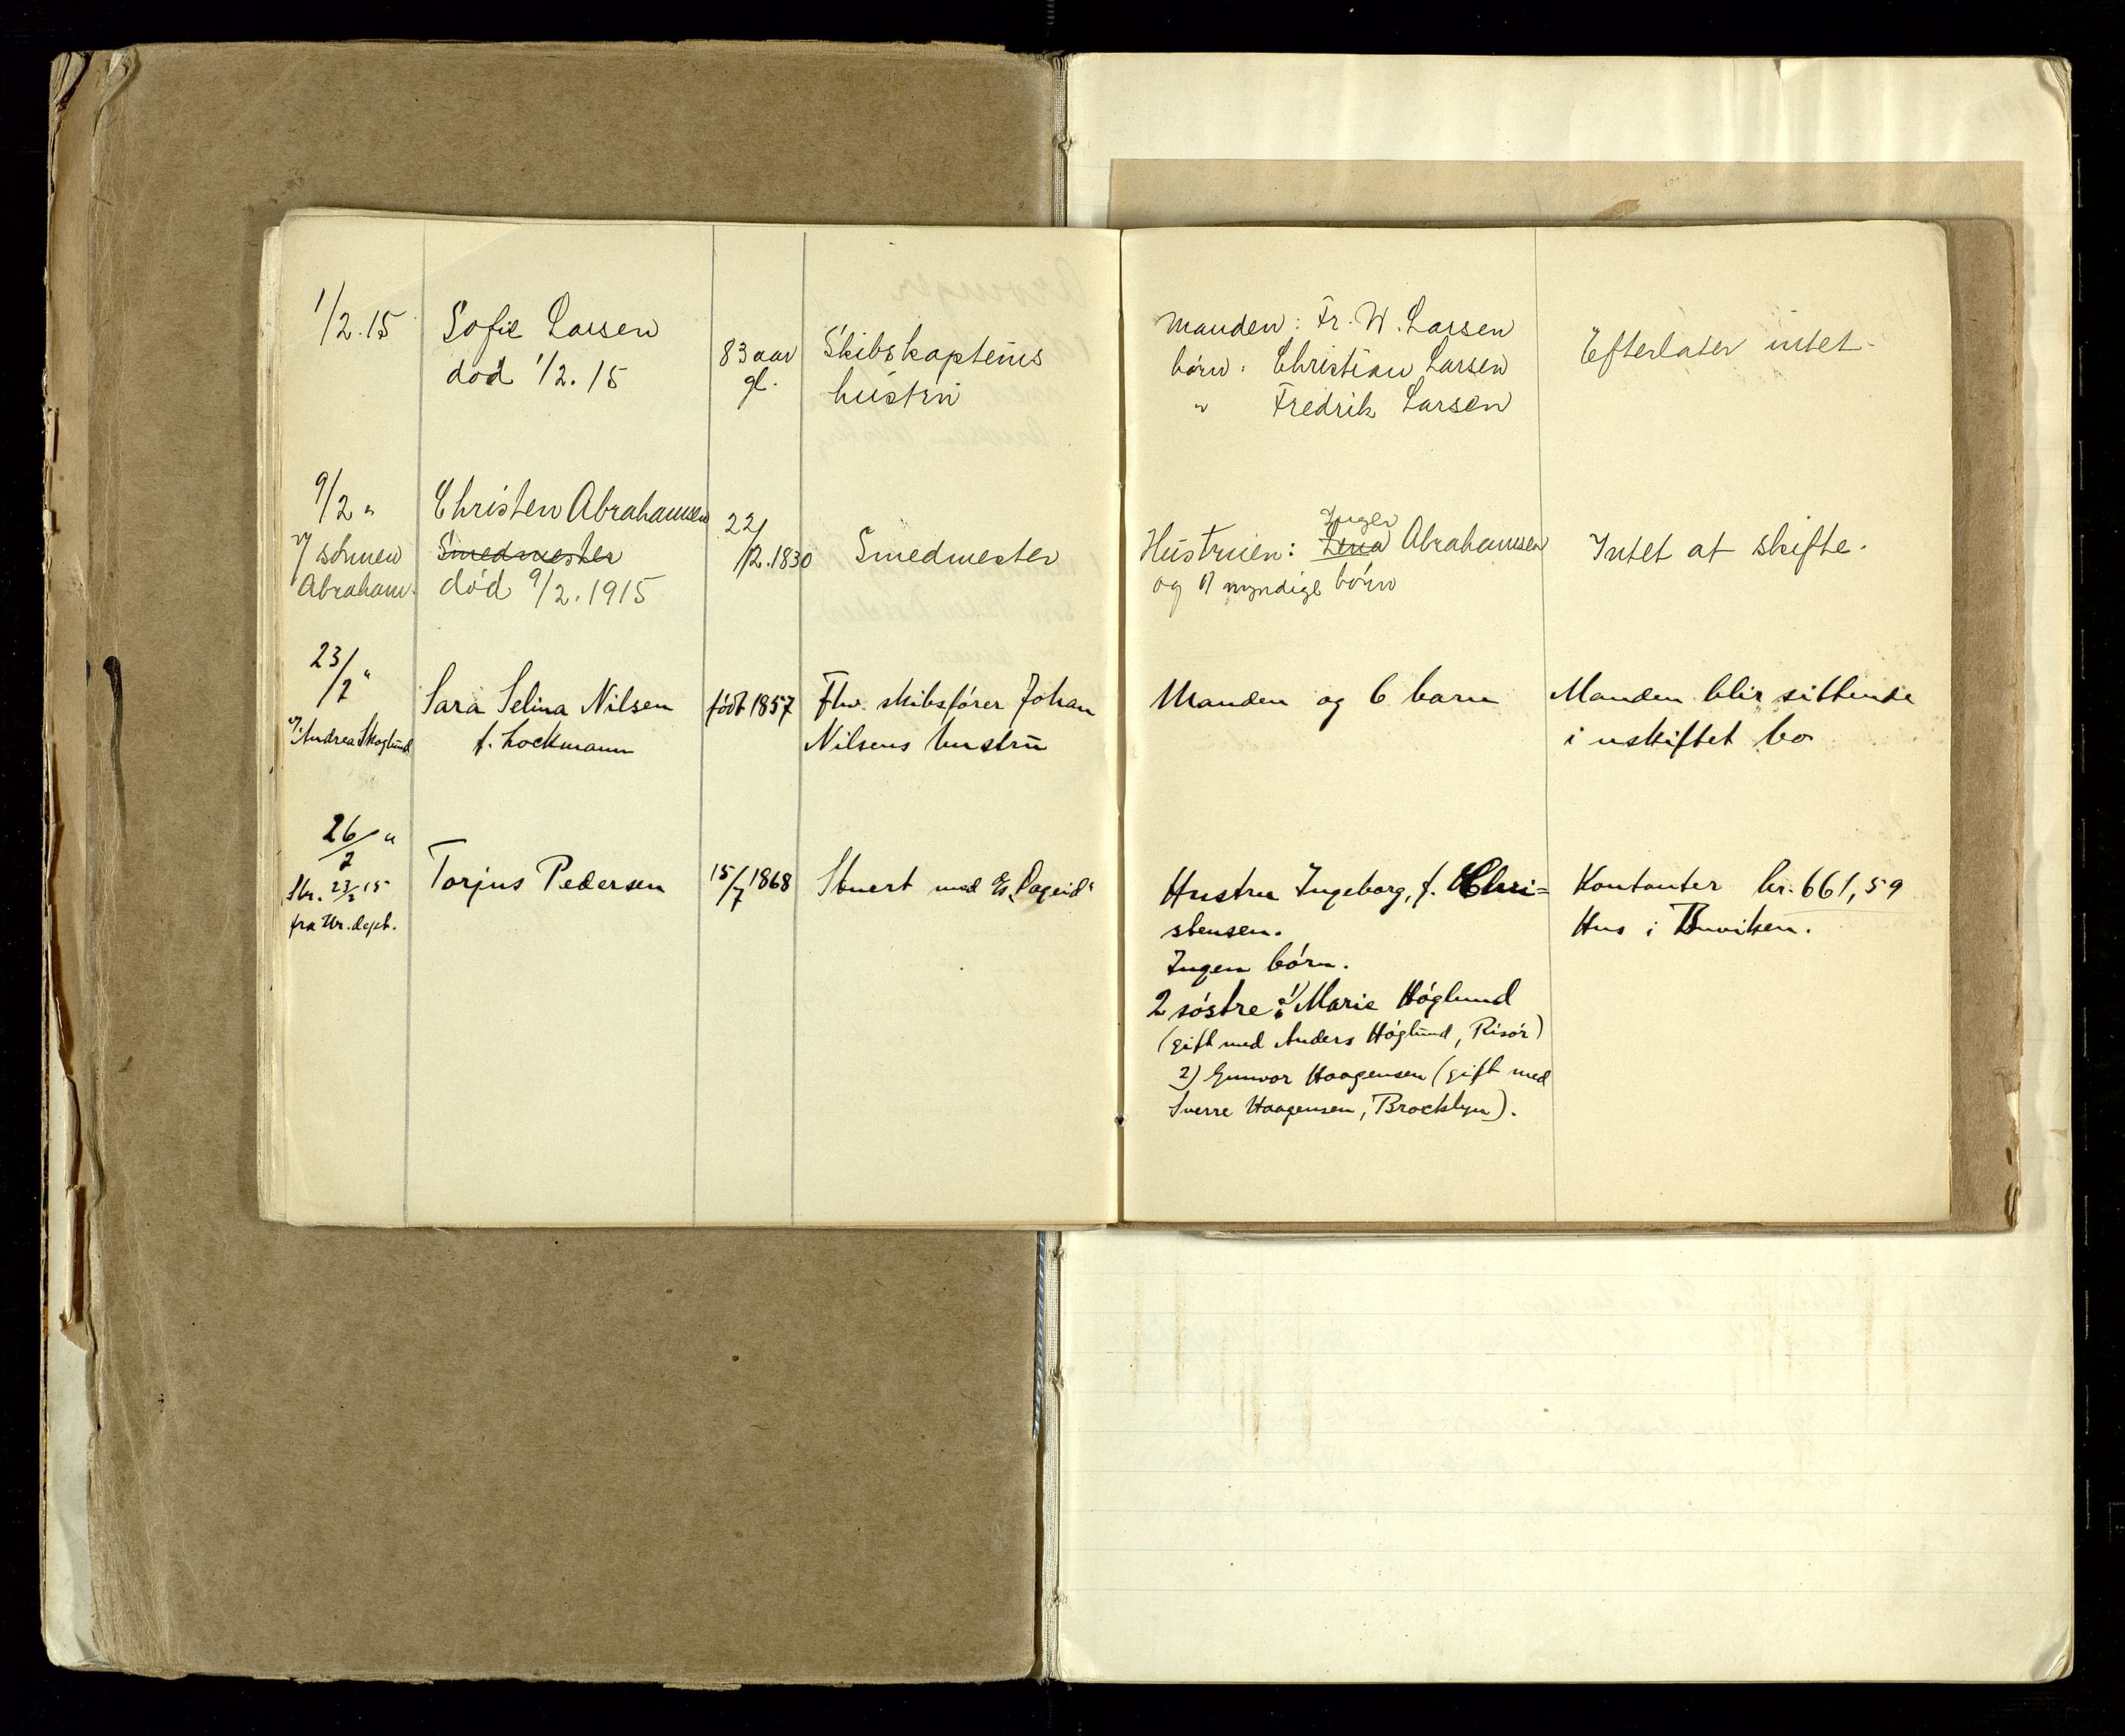 1/2.15 Sofie Larsen 83 aar Skibskapteins Manden: Fr. W. Larsen Efterlater intet.
død 1/2.15 gl. hustru børn: Christian Larsen
" Fredrik Larsen
9/2 " Christen Abrahamsen 22/12.1830 Smedmester Hustruen: Lena Inger Abrahamsen Intet at skifte.
v/ sønnen Smedmester og myndige børn
Abraham. død 9/2.1915
23/2 " Sara Selina Nilsen født 1857 Fhv. skibsfører Johan Manden og 6 barn Manden blir sittende
v/ Andrea Skoglund f. Lockmann Nilsens hustru i uskiftet bo
26/2 " Torjus Pedersen 15/7 1868 Stuert med Hustru Ingeborg, f. Chri= Kontanter kr. 661,59
Skr. 23/2 15 stensen. Hus i Buviken.
fra Ur. dept. Ingen børn.
2 søstre: 1) Marie Høglund
(gift med Anders Høglund, Risør)
2) Gunvor Haagensen (gift med
Sverre Haagensen, Brocklyn).